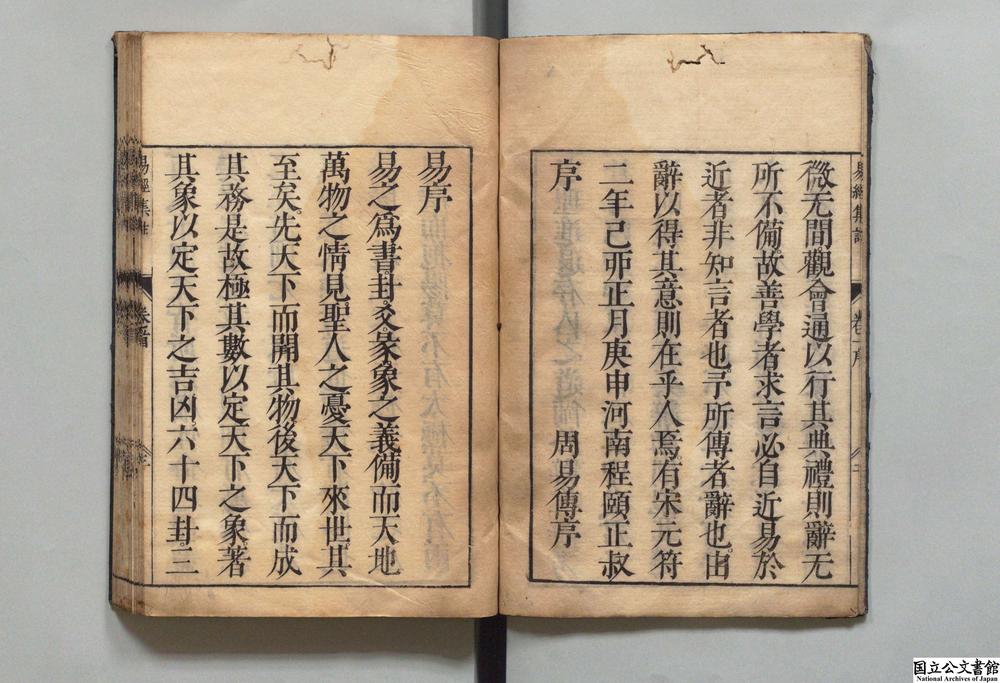 易經集註
卷一序
微无間觀會通以行其典禮則辭无
所不備故善學者求言必自近易於
近者非知言者也予所傳者辭也由
辭以得其意則在乎人焉有宋元符
二年己卯正月庚申河南程頤正叔
序 周易傳序
易序
易之爲書卦爻彖象之義備而天地
萬物之情見聖人之憂天下來世其
至矣先天下而開其物後天下而成
其務是故極其數以定天下之象著
其象以定天下之吉凶六十四卦三
易經集註
國立公文書館
National Archives of Japan